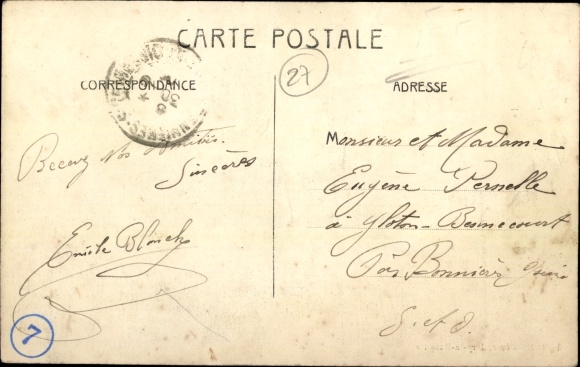 CARTE POSTALE
CORRESPONDANCE
ADRESSE
27
Recevez Nos Amitiés.
Sincères
Emile Blanch
Monsieur et Madame
Eugène Pernelle
à Gloton-Bennecourt
Par Bonnières
S. et O.
7